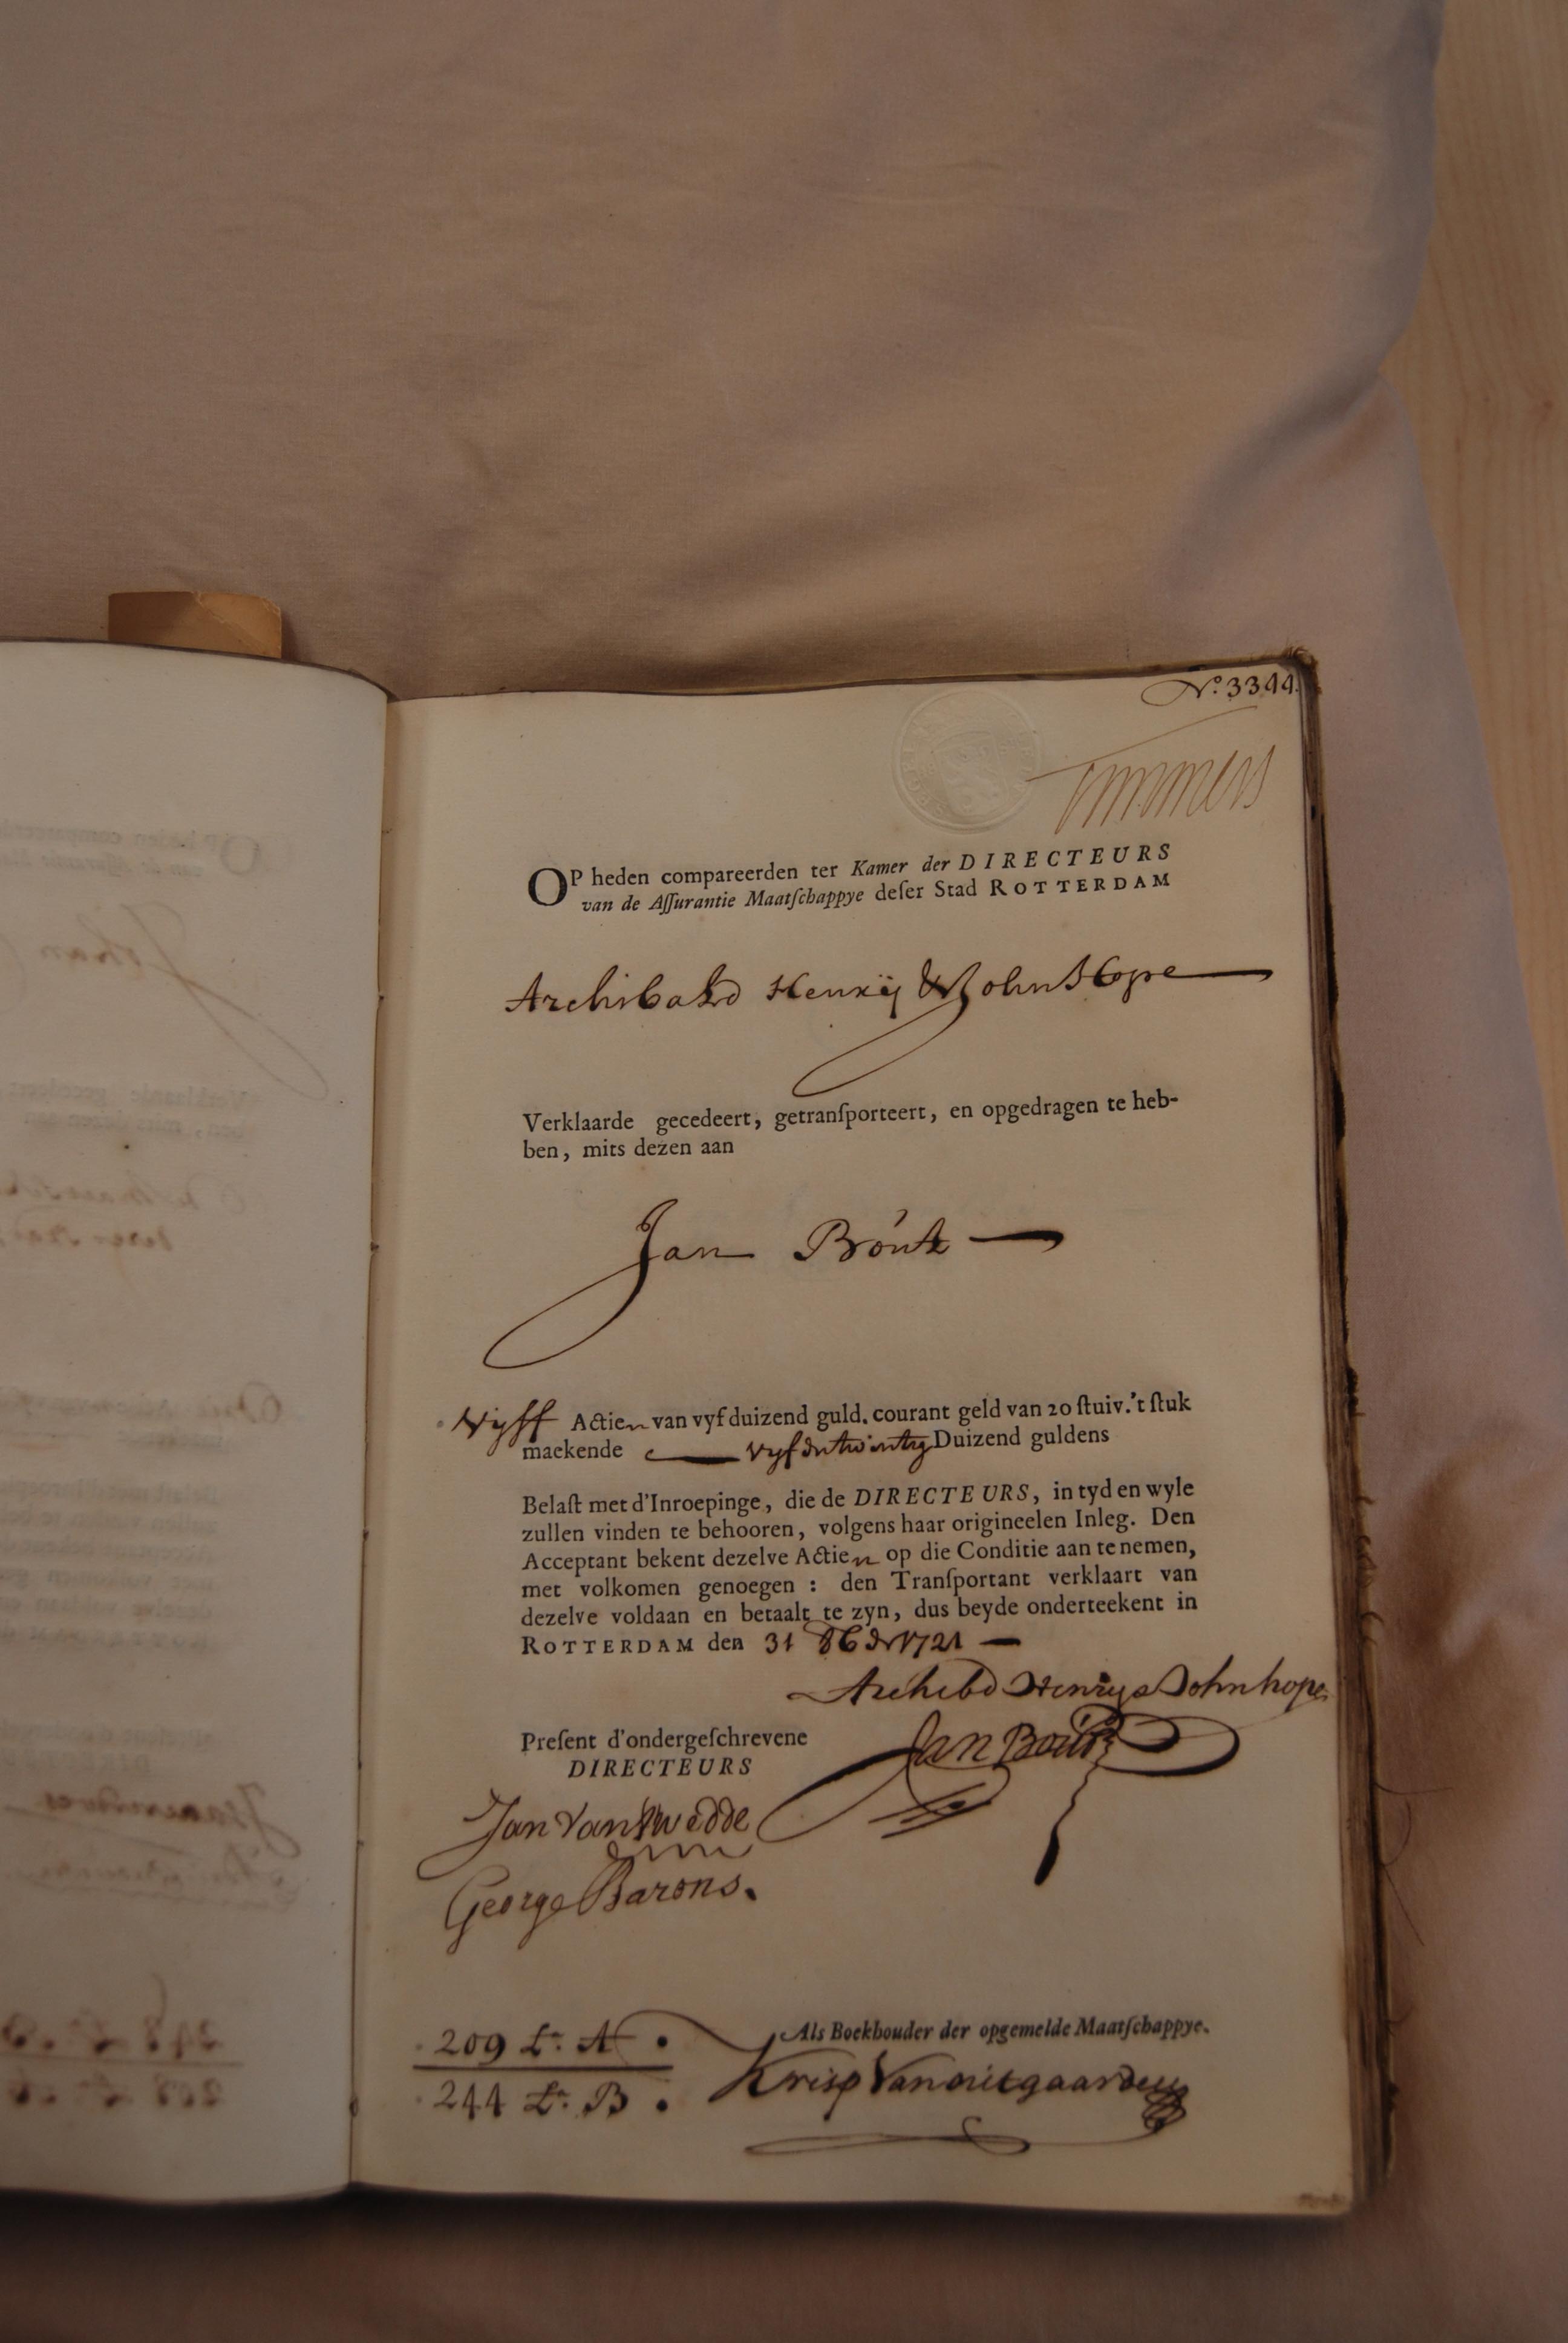 No. 3344.
Timmers
OP heden compareerden ter Kamer der DIRECTEURS
van de Aſſurantie Maatſchappye deſer Stad ROTTERDAM
Archibald Henrÿ & John Hope
Verklaarde gecedeert, getranſporteert, en opgedragen te heb-
ben, mits dezen aan
Jan Bóute
Vyff Actien van vyf duizend guld. courant geld van 20 ſtuiv. 't ſtuk
maekende vyfentwintig Duizend guldens
Belaſt met d'Inroepinge, die de DIRECTEURS, in tyd en wyle
zullen vinden te behooren, volgens haar origineelen Inleg. Den
Acceptant bekent dezelve Actien op die Conditie aan te nemen,
met volkomen genoegen : den Tranſportant verklaart van
dezelve voldaan en betaalt te zyn, dus beyde onderteekent in
ROTTERDAM den 31 8ber 1721
Archibd Henry & John hope
Preſent d'ondergeſchrevene
Jan
DIRECTEURS
Jan
George Barons.
209 Lr. A
Als Boekhouder der opgemelde Maatſchappye.
244 Lr. B
Krisp Van outgaarden